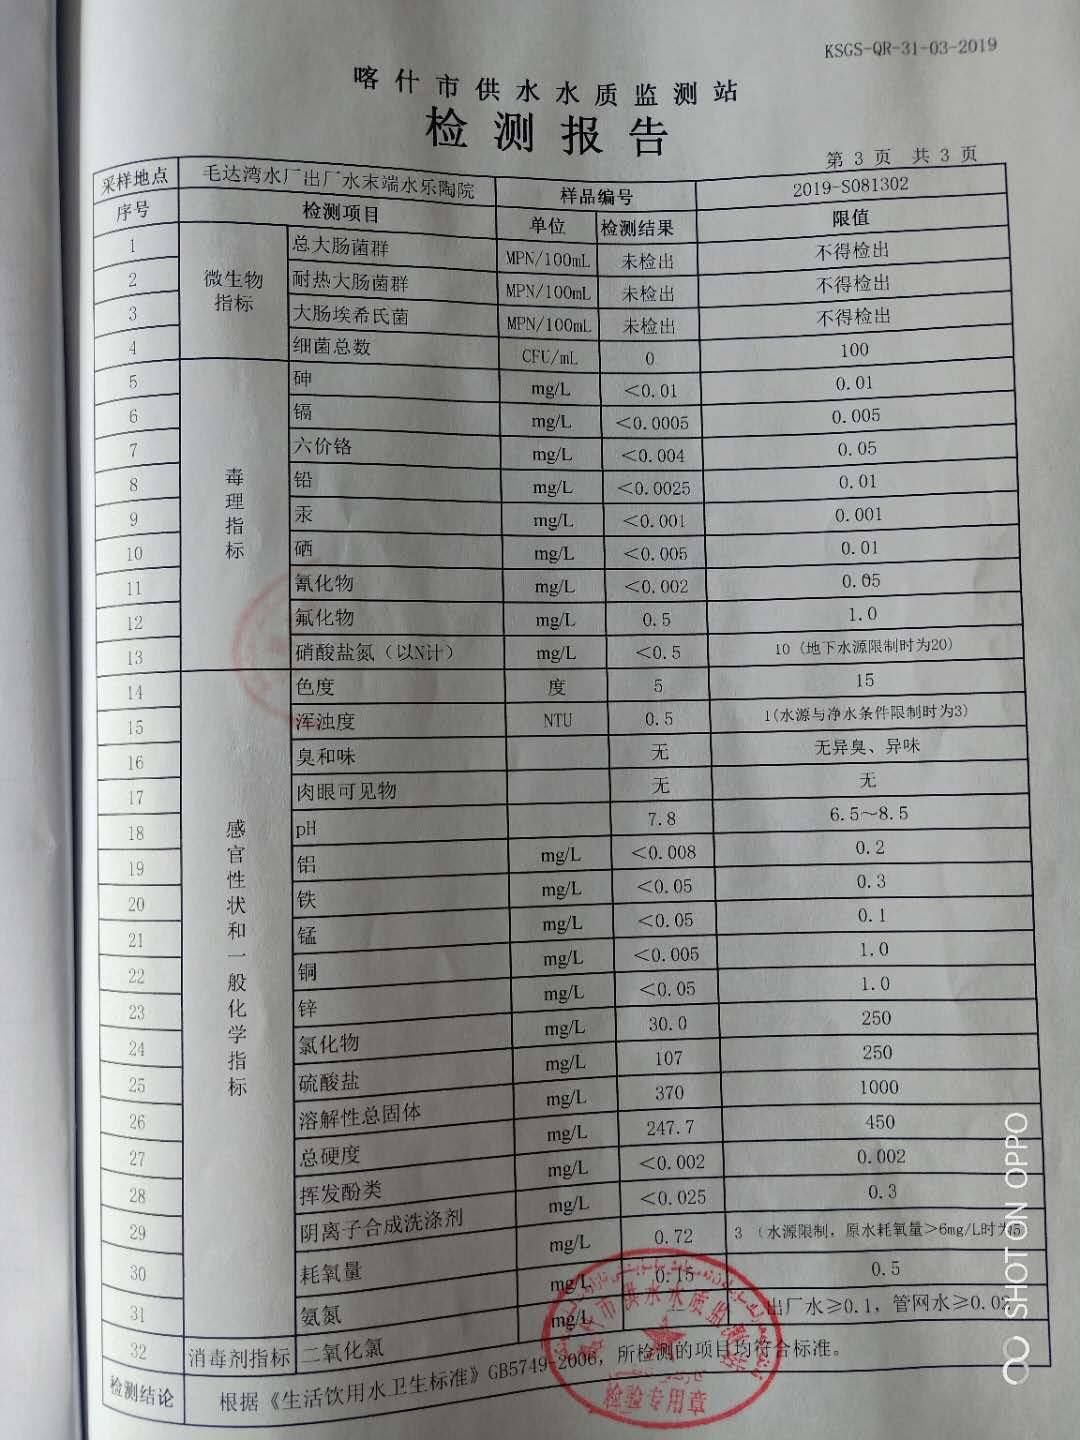 KSGS-QR-31-03-2019
喀什市供水水质监测站
检测报告
第 3 页 共 3 页
采样地点 毛达湾水厂出厂水末端水乐陶院 样品编号 2019-S081302
序号 检测项目 单位 检测结果 限值
微生物指标
1 总大肠菌群 MPN/100mL 未检出 不得检出
2 耐热大肠菌群 MPN/100mL 未检出 不得检出
3 大肠埃希氏菌 MPN/100mL 未检出 不得检出
4 细菌总数 CFU/mL 0 100
毒理指标
5 砷 mg/L <0.01 0.01
6 镉 mg/L <0.0005 0.005
7 六价铬 mg/L <0.004 0.05
8 铅 mg/L <0.0025 0.01
9 汞 mg/L <0.001 0.001
10 硒 mg/L <0.005 0.01
11 氰化物 mg/L <0.002 0.05
12 氟化物 mg/L 0.5 1.0
13 硝酸盐氮（以N计） mg/L <0.5 10（地下水源限制时为20）
感官性状和一般化学指标
14 色度 度 5 15
15 浑浊度 NTU 0.5 1(水源与净水条件限制时为3)
16 臭和味 无 无异臭、异味
17 肉眼可见物 无 无
18 pH 7.8 6.5～8.5
19 铝 mg/L <0.008 0.2
20 铁 mg/L <0.05 0.3
21 锰 mg/L <0.05 0.1
22 铜 mg/L <0.005 1.0
23 锌 mg/L <0.05 1.0
24 氯化物 mg/L 30.0 250
25 硫酸盐 mg/L 107 250
26 溶解性总固体 mg/L 370 1000
27 总硬度 mg/L 247.7 450
28 挥发酚类 mg/L <0.002 0.002
29 阴离子合成洗涤剂 mg/L <0.025 0.3
30 耗氧量 mg/L 0.72 3（水源限制，原水耗氧量>6mg/L时为5
31 氨氮 mg/L 0.15 0.5
32 消毒剂指标 二氧化氯 mg/L — 出厂水≥0.1，管网水≥0.02
检测结论 根据《生活饮用水卫生标准》GB5749-2006，所检测的项目均符合标准。
喀什市供水水质监测站
检验专用章
SHOT ON OPPO